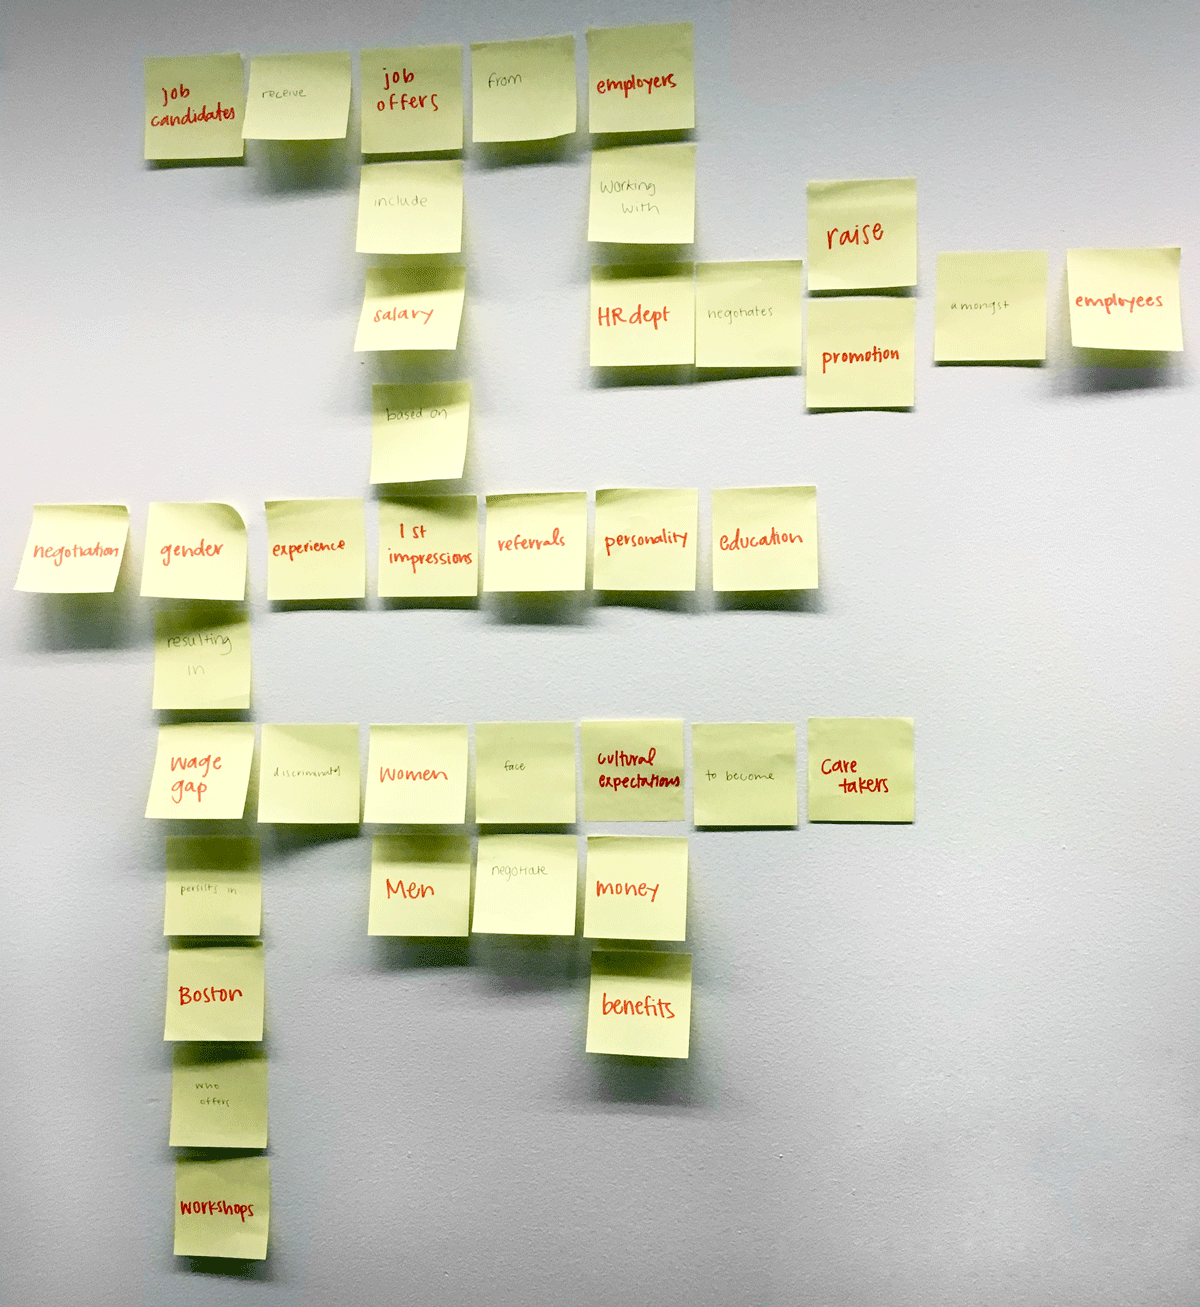 job
candidates
receive
job
offers
from
employers
include
working
with
raise
salary
HR dept
negotiates
promotion
amongst
employees
based on
negotiation
gender
experience
1st
impressions
referrals
personality
education
resulting
in
wage
gap
discriminates
women
face
cultural
expectations
to become
care
takers
persists in
Men
negotiate
money
Boston
benefits
who
offers
workshops